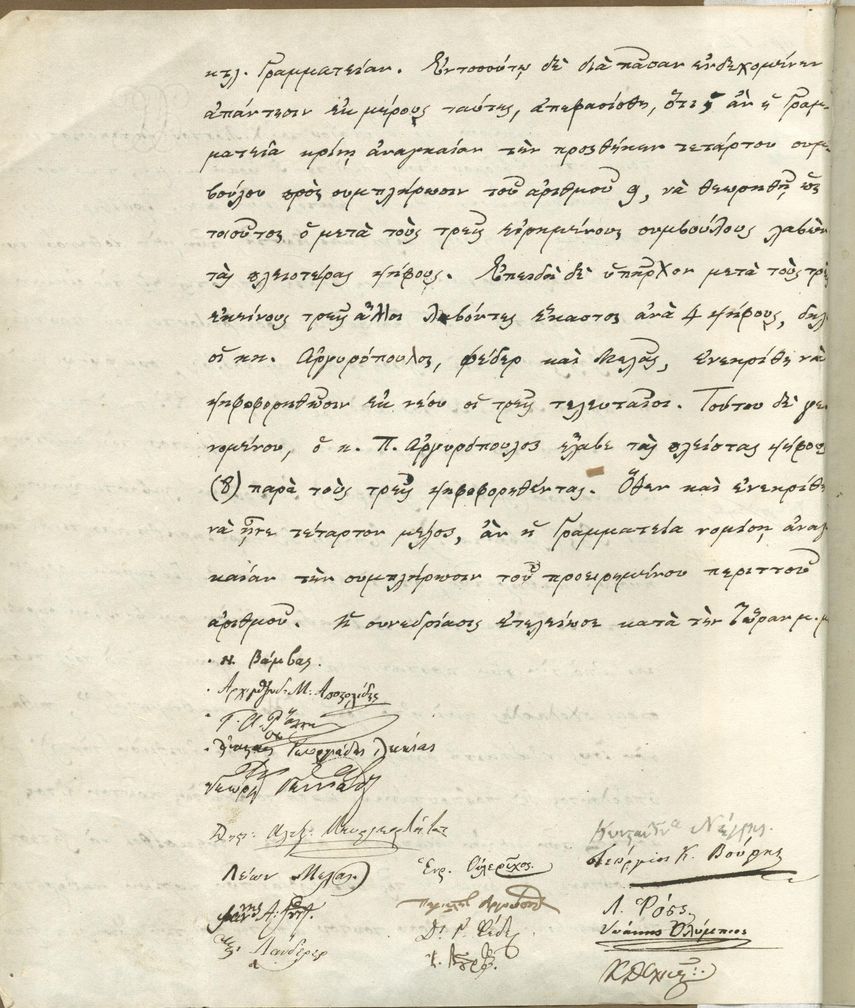 κτλ. Γραμματείαν. Ἐντοσούτῳ δὲ διὰ πᾶσαν ἐνδεχομένην
ἀπάντησιν ἐκ μέρους ταύτης, ἀπεφασίσθη, ὅτι ἂν ἡ Γραμ-
ματεία κρίνῃ ἀναγκαίαν τὴν προσθήκην τετάρτου συμ-
βούλου πρὸς συμπλήρωσιν τοῦ ἀριθμοῦ 9, νὰ θεωρηθῇ ὡς
τοιοῦτος ὁ μετὰ τοὺς τρεῖς εἰρημένους συμβούλους λαβὼν
τὰς πλειοτέρας ψήφους. Ἐπειδὴ δὲ ὑπῆρχον μετὰ τοὺς τρεῖς
ἐκείνους τρεῖς ἄλλοι λαβόντες ἕκαστος ἀνὰ 4 ψήφους, δηλ
οἱ κκ. Ἀργυρόπουλος, Φέδερ καὶ Μελᾶς, ἐνεκρίθη νὰ
ψηφοφορηθῶσιν ἐκ νέου οἱ τρεῖς τελευταῖοι. Τούτου δὲ γε-
νομένου, ὁ κ. Π. Ἀργυρόπουλος ἔλαβε τὰς πλείστας ψήφους
(8) παρὰ τοὺς τρεῖς ψηφοφορηθέντας. Ὅθεν καὶ ἐνεκρίθη
νὰ ἦτε τέταρτον μέλος, ἂν ἡ Γραμματεία νομίσῃ ἀναγ-
καίαν τὴν συμπλήρωσιν τοῦ προειρημένου περιττοῦ
ἀριθμοῦ. Ἡ συνεδρίασις ἐτελείωσε κατὰ τὴν 7 ὥραν μ. μ
Ν. Βάμβας.
Μ. Ἀποστολίδης
Γ. Α. Ῥάλλης
Γεωργιάδης Λευκίας
Γεώργ Γεννάδιος
Λέων Μελᾶς
Ἑρ. Οὑλερῖχος.
Κωνσταντῖνος Νέγρης.
Γεώργιος Κ. Βούρης
Δ. Φέδερ
Λ. Ῥόσς
Ἰωάννης Ὀλύμπιος
Λάνδερερ